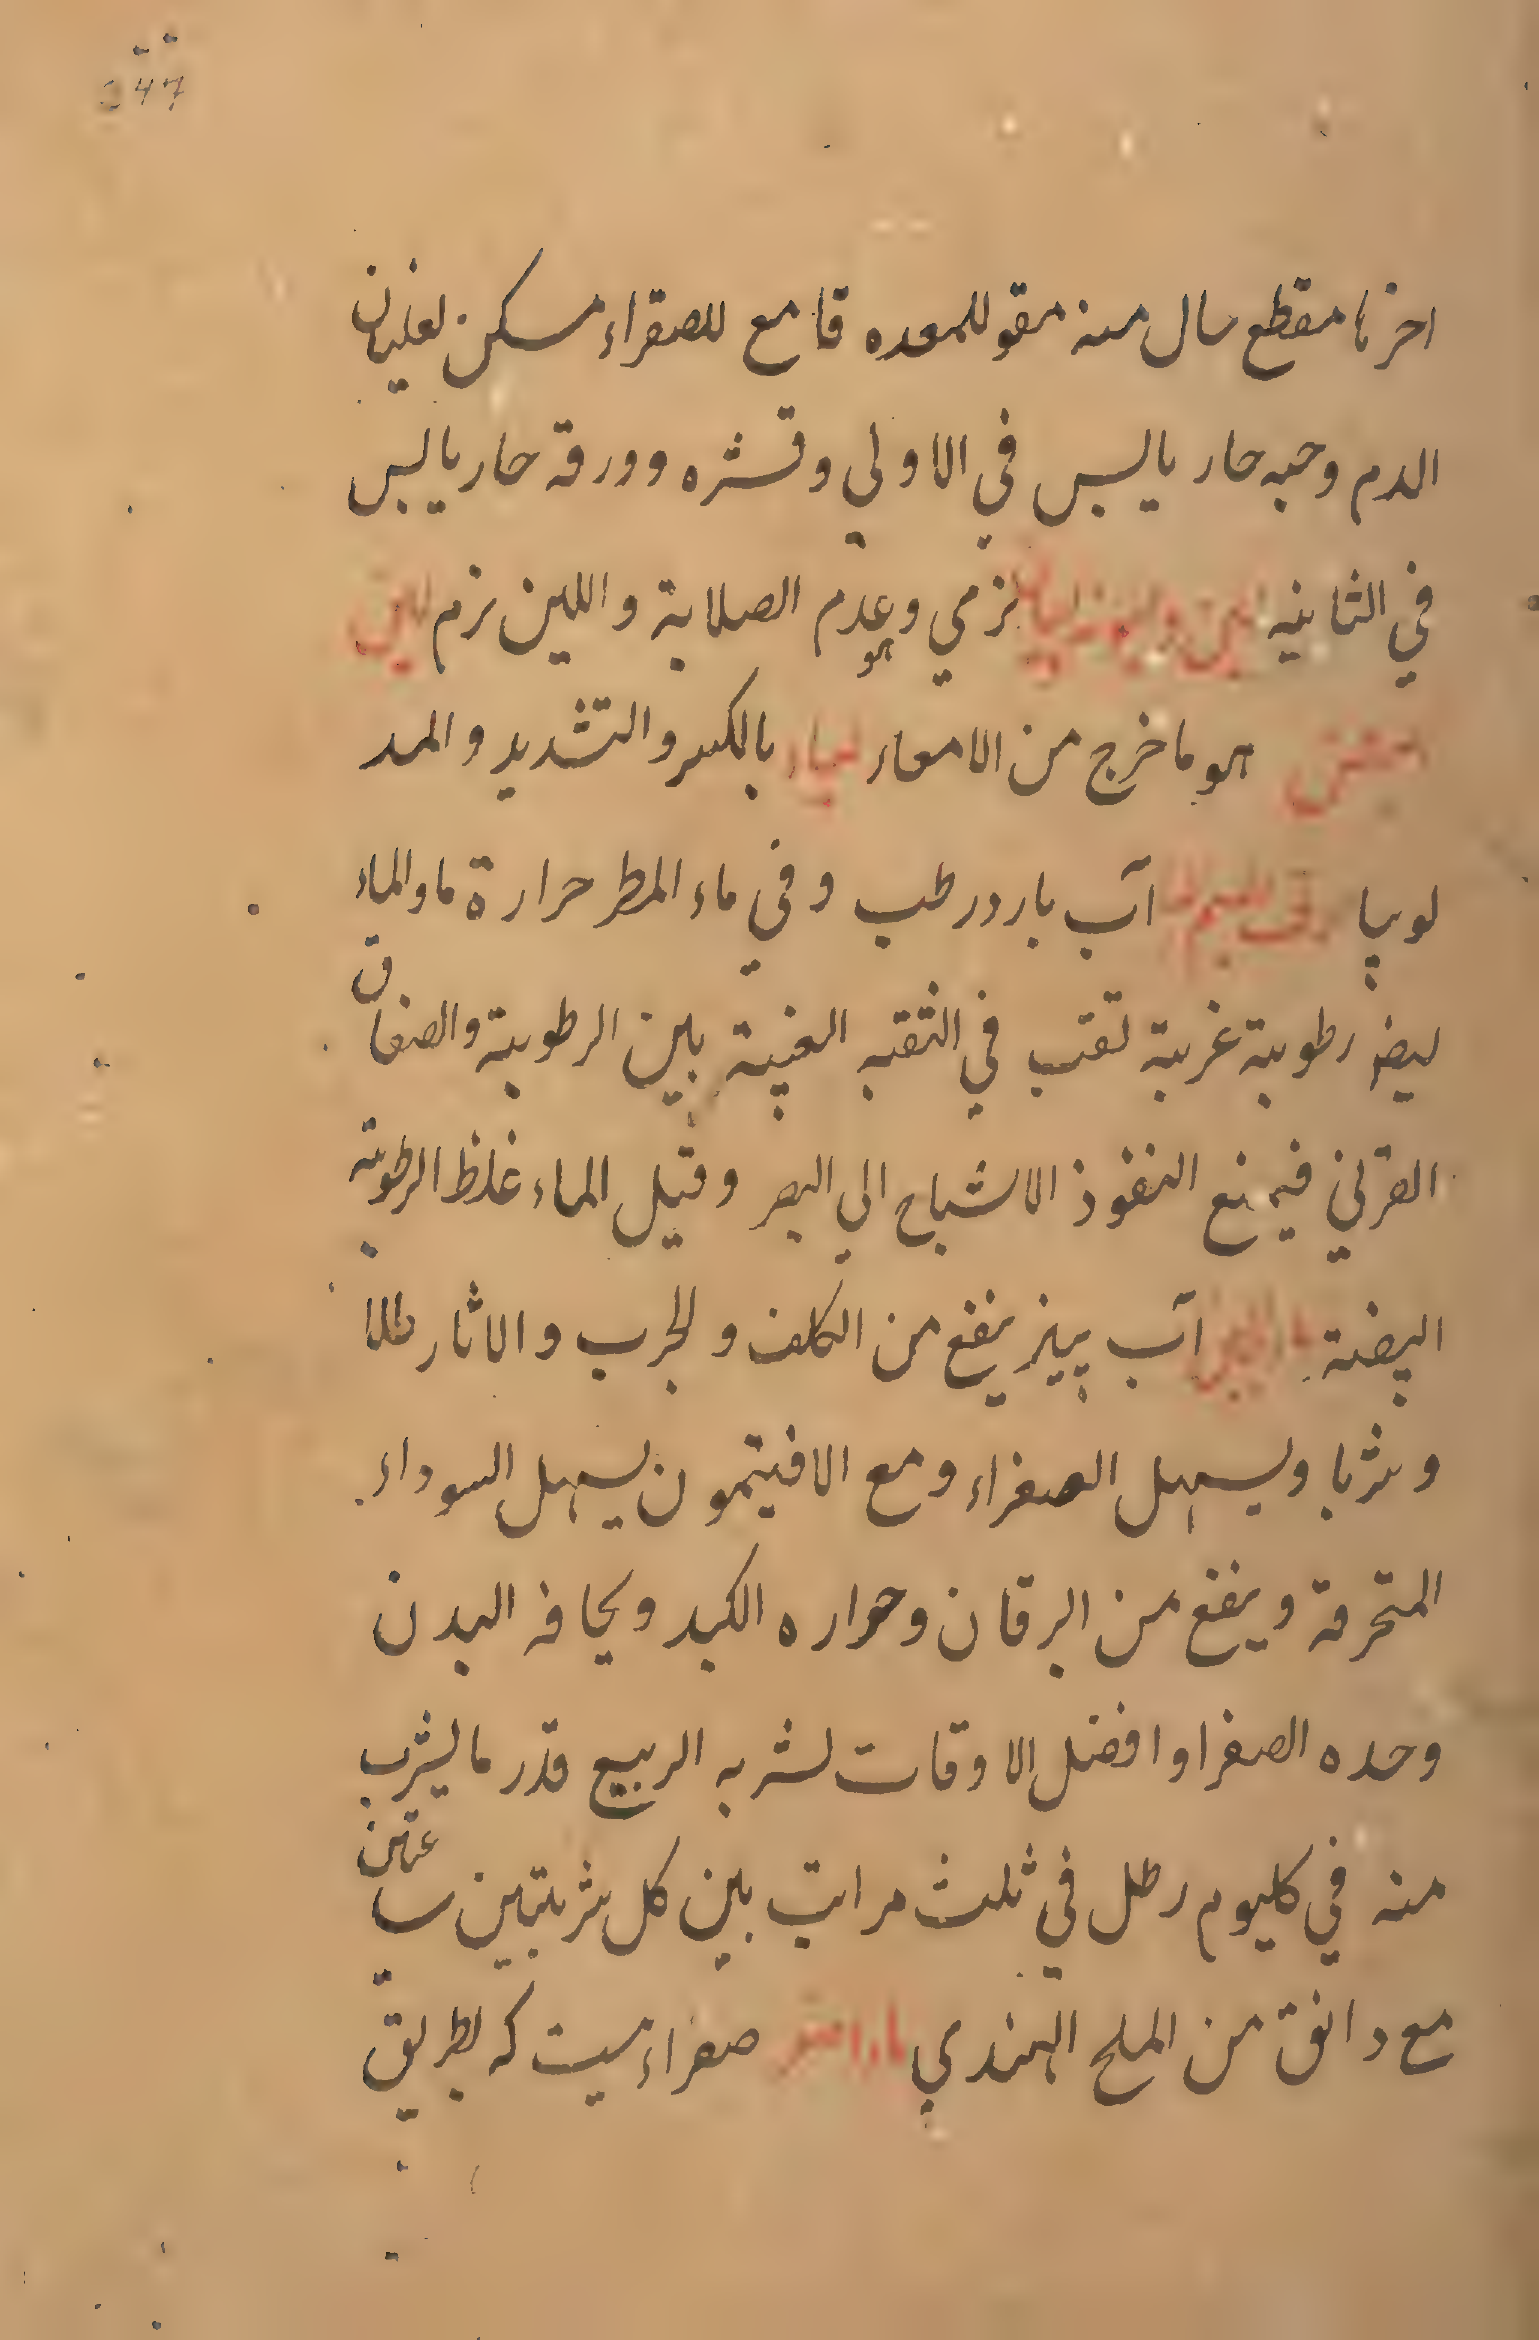 ۲۴۷
اجزائها مقطع سال منه مقو للمعده قامع للصفراء مسكن لغليان
الدم وحبه حار يابس في الاولي وقشره وورقه حار يابس
في الثانيه نرمي وهو عدم الصلابة واللين نرم
هو ما خرج من الامعاء لبياء بالكسر والتشديد والمد
لوبيا آب بارد رطب وفي ماء المطر حرارة ما والماء
ايضا رطوبة غريبة تقب في الثقبه العنبية بين الرطوبية والصفاق
القرني فيمنع النفوذ الاشباح الي البصر وقيل الماء غلظ الرطوبة
البيضية ماء الجبن آب پنير ينفع من الكلف والجرب والاثار طلا
وشربا ويسهل الصفراء ومع الافيتمون يسهل السوداء
المتحرقة وينفع من اليرقان وحراره الكبد ونحافه البدن
وحده الصفرا وافضل الاوقات لشربه الربيع قدر ما يشرب
منه في كليوم رطل في ثلث مرات بين كل شربتين ساعتين
مع دانق من الملح الهندي صفراء ميست كه بطريق